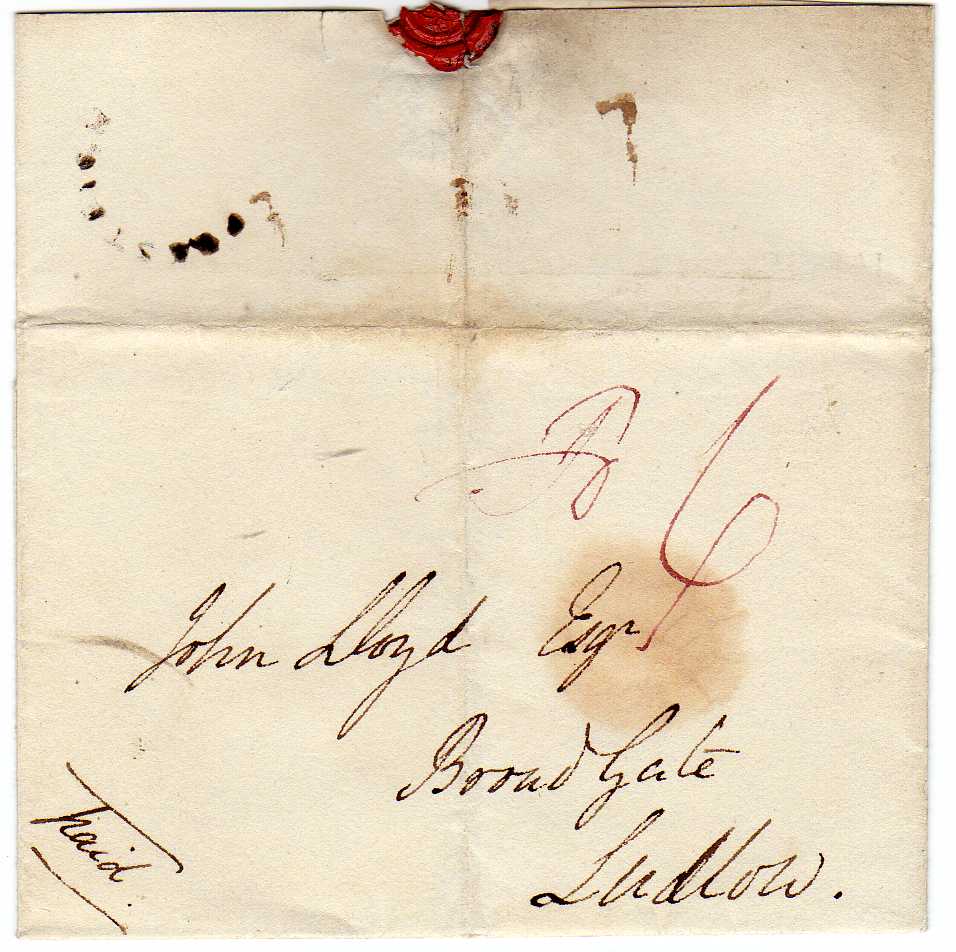 John Lloyd Esqr
Broad Gate
Ludlow.
Paid.